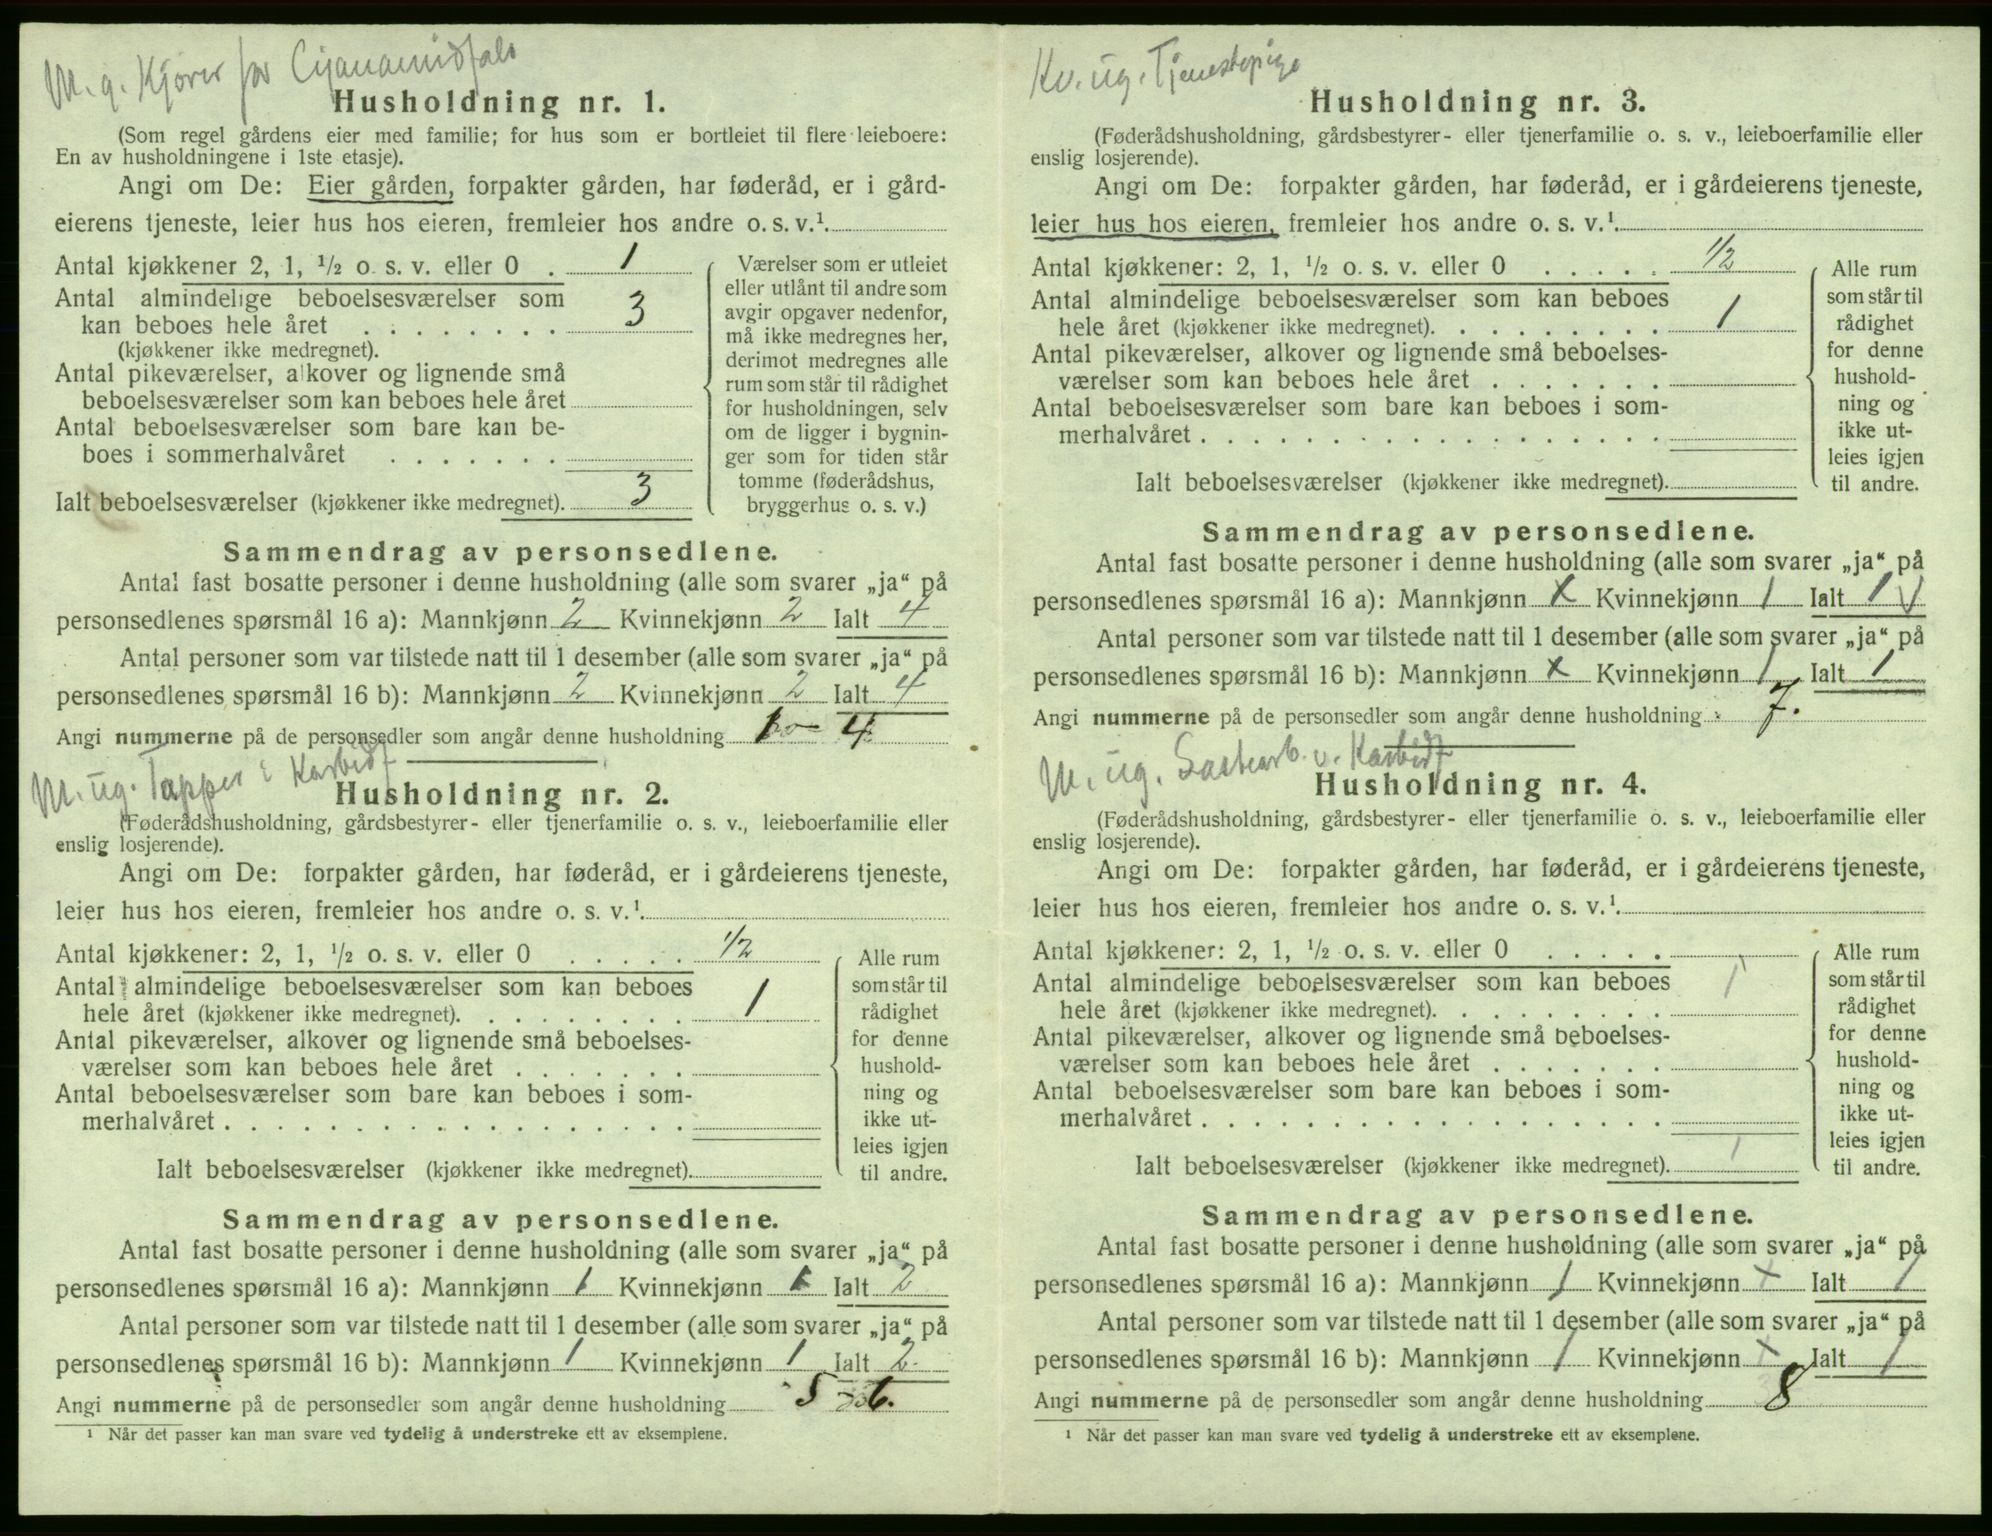 M. g. Kjører for Cyanamidfab
Husholdning nr. 1.
(Som regel gårdens eier med familie; for hus som er bortleiet til flere leieboere:
En av husholdningene i 1ste etasje).
Angi om De: Eier gården, forpakter gården, har føderåd, er i gård-
eierens tjeneste, leier hus hos eieren, fremleier hos andre o. s. v.¹
Antal kjøkkener 2, 1, ½ o. s. v. eller 0 . 1
Antal almindelige beboelsesværelser som
kan beboes hele året . . . . . . . . 3
(kjøkkener ikke medregnet).
Antal pikeværelser, alkover og lignende små
beboelsesværelser som kan beboes hele året
Antal beboelsesværelser som bare kan be-
boes i sommerhalvåret . . . . . . .
Ialt beboelsesværelser (kjøkkener ikke medregnet). 3
Værelser som er utleiet
eller utlånt til andre som
avgir opgaver nedenfor,
må ikke medregnes her,
derimot medregnes alle
rum som står til rådighet
for husholdningen, selv
om de ligger i bygnin-
ger som for tiden står
tomme (føderådshus,
bryggerhus o. s. v.)
Sammendrag av personsedlene.
Antal fast bosatte personer i denne husholdning (alle som svarer „ja“ på
personsedlenes spørsmål 16 a): Mannkjønn 2 Kvinnekjønn 2 Ialt 4
Antal personer som var tilstede natt til 1 desember (alle som svarer „ja“ på
personsedlenes spørsmål 16 b): Mannkjønn 2 Kvinnekjønn 2 Ialt 4
Angi nummerne på de personsedler som angår denne husholdning 1 – 4
M. ug. Tapper i Karbidf
Husholdning nr. 2.
(Føderådshusholdning, gårdsbestyrer- eller tjenerfamilie o. s. v., leieboerfamilie eller
enslig losjerende).
Angi om De: forpakter gården, har føderåd, er i gårdeierens tjeneste,
leier hus hos eieren, fremleier hos andre o. s. v.¹
Antal kjøkkener: 2, 1, ½ o. s. v. eller 0 . . . . . 1/2
Antal almindelige beboelsesværelser som kan beboes
hele året (kjøkkener ikke medregnet). . . . . . . . . 1
Antal pikeværelser, alkover og lignende små beboelses-
værelser som kan beboes hele året . . . . . . .
Antal beboelsesværelser som bare kan beboes i som-
merhalvåret . . . . . . . . . . . . . . . . . .
Ialt beboelsesværelser (kjøkkener ikke medregnet).
Alle rum
som står til
rådighet
for denne
hushold-
ning og
ikke ut-
leies igjen
til andre.
Sammendrag av personsedlene.
Antal fast bosatte personer i denne husholdning (alle som svarer „ja“ på
personsedlenes spørsmål 16 a): Mannkjønn 1 Kvinnekjønn 1 Ialt 2
Antal personer som var tilstede natt til 1 desember (alle som svarer „ja“ på
personsedlenes spørsmål 16 b): Mannkjønn 1 Kvinnekjønn 1 Ialt 2
Angi nummerne på de personsedler som angår denne husholdning 5 6.
¹ Når det passer kan man svare ved tydelig å understreke ett av eksemplene.
Kv. ug. Tjenestepige
Husholdning nr. 3.
(Føderådshusholdning, gårdsbestyrer- eller tjenerfamilie o. s. v., leieboerfamilie eller
enslig losjerende).
Angi om De: forpakter gården, har føderåd, er i gårdeierens tjeneste,
leier hus hos eieren, fremleier hos andre o. s. v.¹
Antal kjøkkener: 2, 1, ½ o. s. v. eller 0 . . . . . 1/2
Antal almindelige beboelsesværelser som kan beboes
hele året (kjøkkener ikke medregnet). . . . . . . . . 1
Antal pikeværelser, alkover og lignende små beboelses-
værelser som kan beboes hele året . . . . . . .
Antal beboelsesværelser som bare kan beboes i som-
merhalvåret . . . . . . . . . . . . . . . . . .
Ialt beboelsesværelser (kjøkkener ikke medregnet).
Alle rum
som står til
rådighet
for denne
hushold-
ning og
ikke ut-
leies igjen
til andre.
Sammendrag av personsedlene.
Antal fast bosatte personer i denne husholdning (alle som svarer „ja“ på
personsedlenes spørsmål 16 a): Mannkjønn x Kvinnekjønn 1 Ialt 1 √
Antal personer som var tilstede natt til 1 desember (alle som svarer „ja“ på
personsedlenes spørsmål 16 b): Mannkjønn x Kvinnekjønn 1 Ialt 1
Angi nummerne på de personsedler som angår denne husholdning 7.
M. ug. v. Karbidf
Husholdning nr. 4.
(Føderådshusholdning, gårdsbestyrer- eller tjenerfamilie o. s. v., leieboerfamilie eller
enslig losjerende).
Angi om De: forpakter gården, har føderåd, er i gårdeierens tjeneste,
leier hus hos eieren, fremleier hos andre o. s. v.¹
Antal kjøkkener: 2, 1, ½ o. s. v. eller 0 . . . . .
Antal almindelige beboelsesværelser som kan beboes
hele året (kjøkkener ikke medregnet). . . . . . . . . 1
Antal pikeværelser, alkover og lignende små beboelses-
værelser som kan beboes hele året . . . . . . .
Antal beboelsesværelser som bare kan beboes i som-
merhalvåret . . . . . . . . . . . . . . . . . .
Ialt beboelsesværelser (kjøkkener ikke medregnet). 1
Alle rum
som står til
rådighet
for denne
hushold-
ning og
ikke ut-
leies igjen
til andre.
Sammendrag av personsedlene.
Antal fast bosatte personer i denne husholdning (alle som svarer „ja“ på
personsedlenes spørsmål 16 a): Mannkjønn 1 Kvinnekjønn x Ialt 1
Antal personer som var tilstede natt til 1 desember (alle som svarer „ja“ på
personsedlenes spørsmål 16 b): Mannkjønn 1 Kvinnekjønn x Ialt 1
Angi nummerne på de personsedler som angår denne husholdning 8
¹ Når det passer kan man svare ved tydelig å understreke ett av eksemplene.